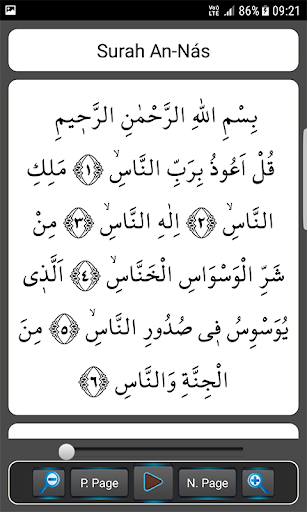 VoD LTE 86% 09:21
Surah An-Nás
بِسْمِ اللهِ الرَّحْمٰنِ الرَّح۪يمِ
قُلْ اَعُوذُ بِرَبِّ النَّاسِۙ ﴿١﴾ مَلِكِ
النَّاسِۙ ﴿٢﴾ اِلٰهِ النَّاسِۙ ﴿٣﴾ مِنْ
شَرِّ الْوَسْوَاسِ الْخَنَّاسِۙ ﴿٤﴾ اَلَّذ۪ي
يُوَسْوِسُ ف۪ي صُدُورِ النَّاسِۙ ﴿٥﴾ مِنَ
الْجِنَّةِ وَالنَّاسِ ﴿٦﴾
P. Page N. Page